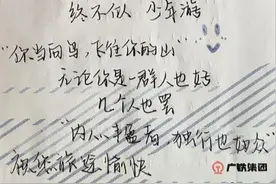 终不似 少年游
"你当向鸟，飞往你的山"
无论你是一群人也好
几个人也罢
"内心丰盈者，独行也如众"
祝您旅途愉快
广铁集团